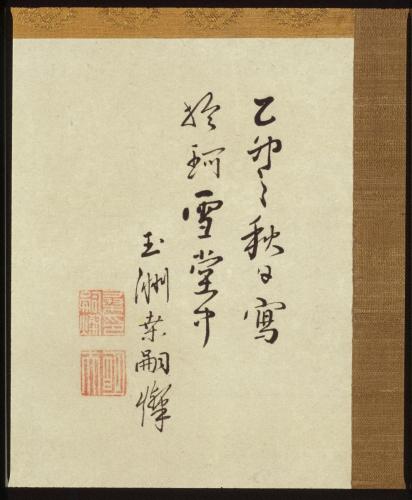 乙卯之秋日寫
於珂雪堂中
玉洲桒嗣燦